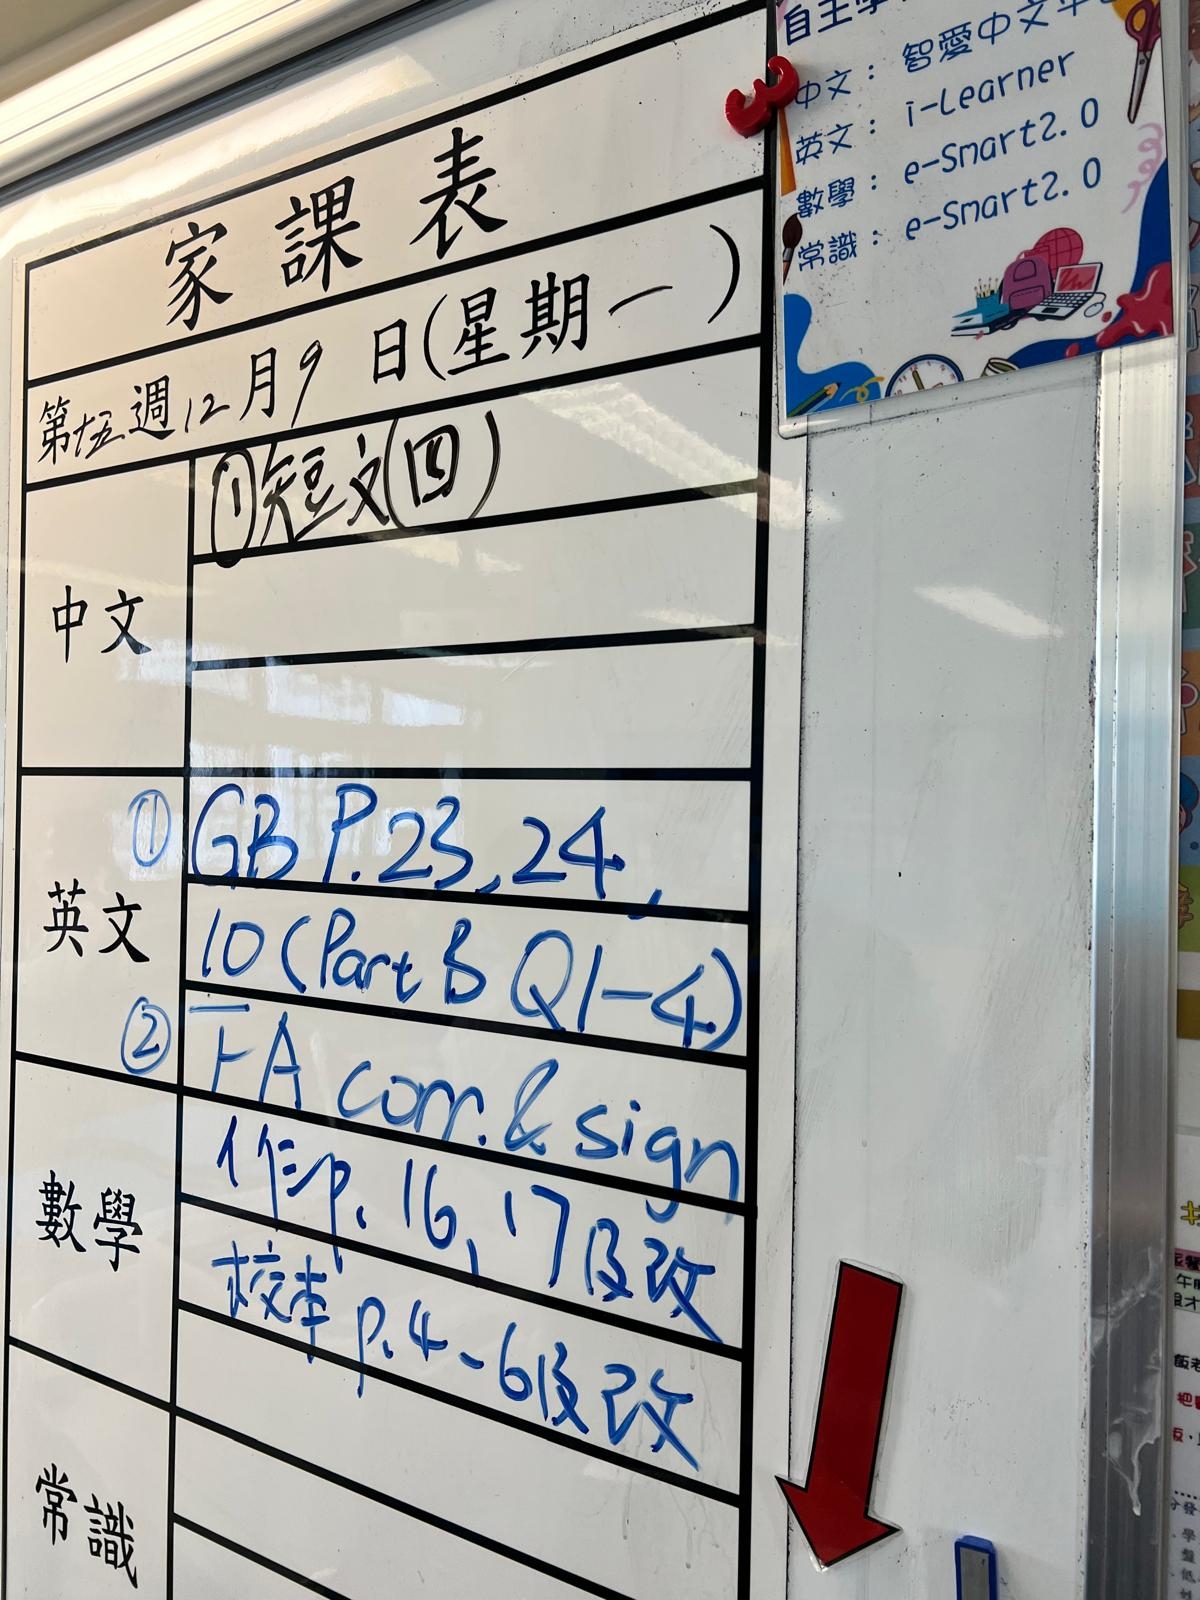 家課表
第十五週12月9日(星期一)
中文
①短文(四)
英文
① GB P.23, 24,
10 (Part B Q1-4)
② FA corr. & sign
數學
作p. 16, 17及改
校本 p.4-6及改
常識
中文： 智愛中文
英文： i-Learner
數學： e-Smart2.0
常識： e-Smart2.0